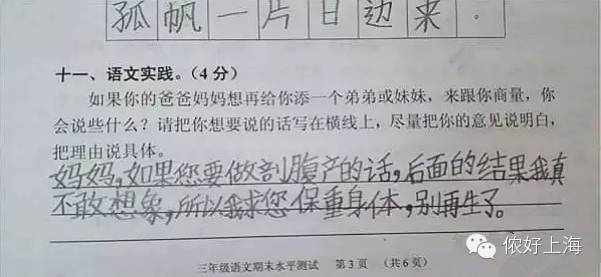 孤帆一片日边来。
十一、语文实践。(4分)
如果你的爸爸妈妈想再给你添一个弟弟或妹妹，来跟你商量，你
会说些什么？请把你想要说的话写在横线上，尽量把你的意见说明白，
把理由说具体。
妈妈,如果您要做剖腹产的话,后面的结果我真
不敢想象,所以我求您保重身体,别再生了。
三年级语文期末水平测试 第3页 (共6页)
侬好上海